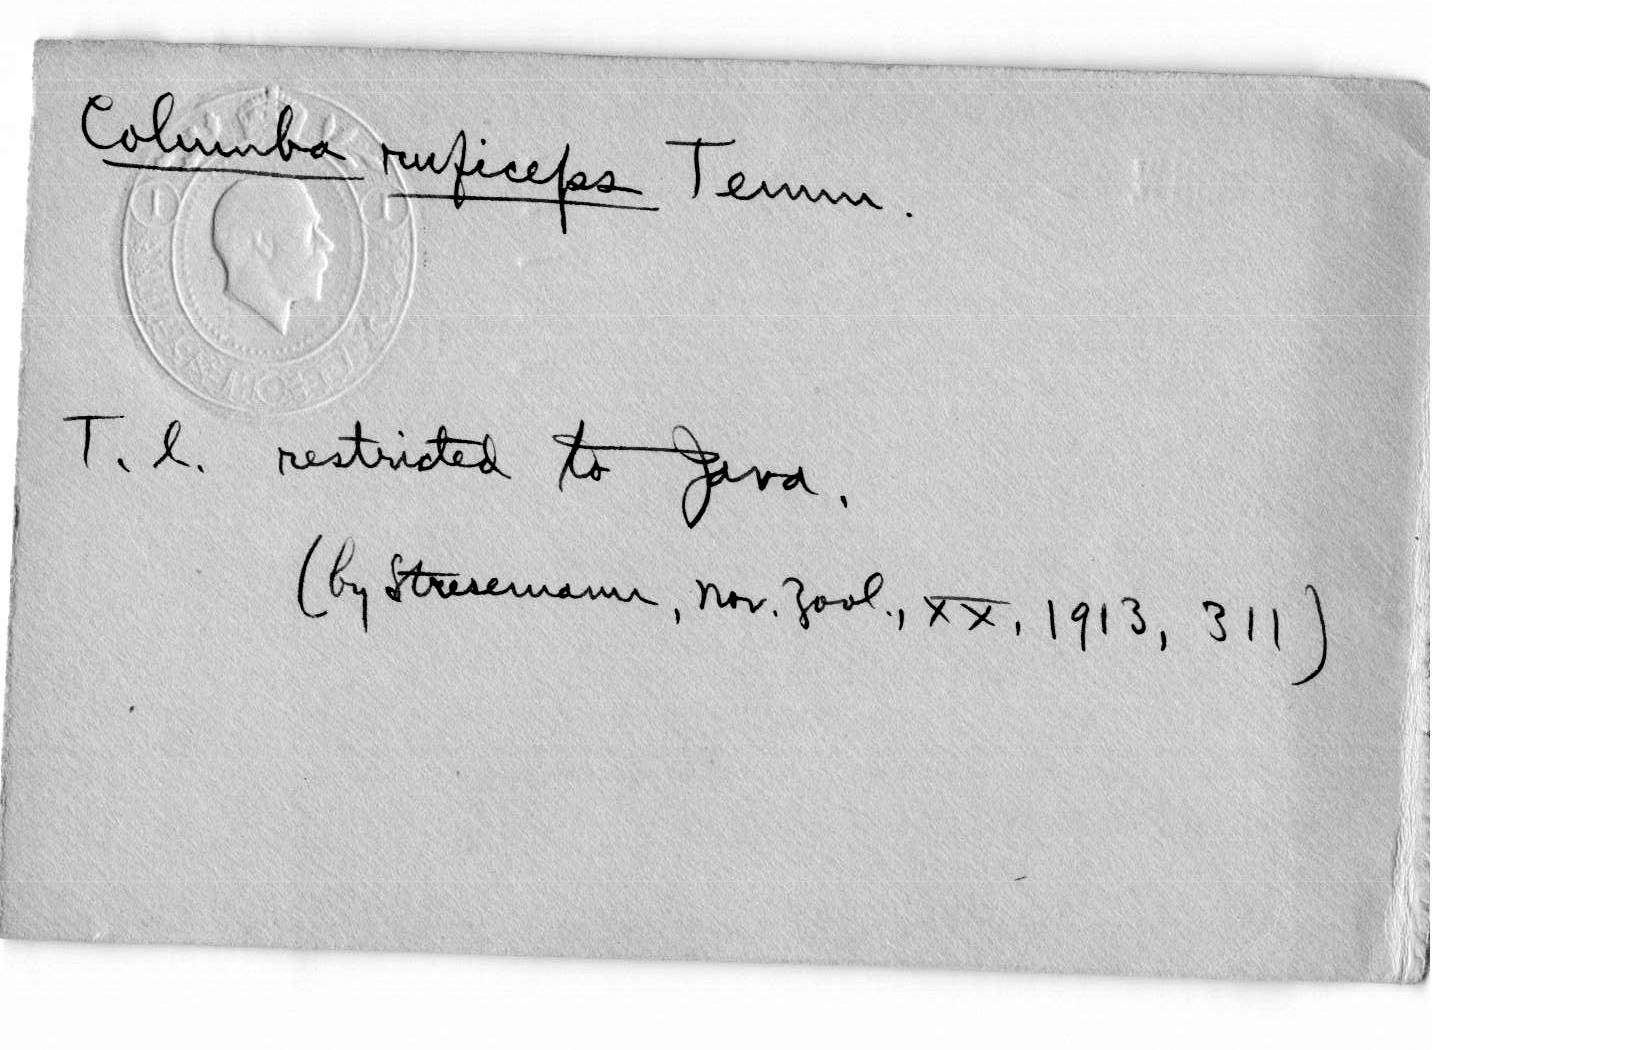 Columba ruficeps Temm.
T. l. restricted to Java.
(by Stresemann, Nov. Zool., XX, 1913, 311)